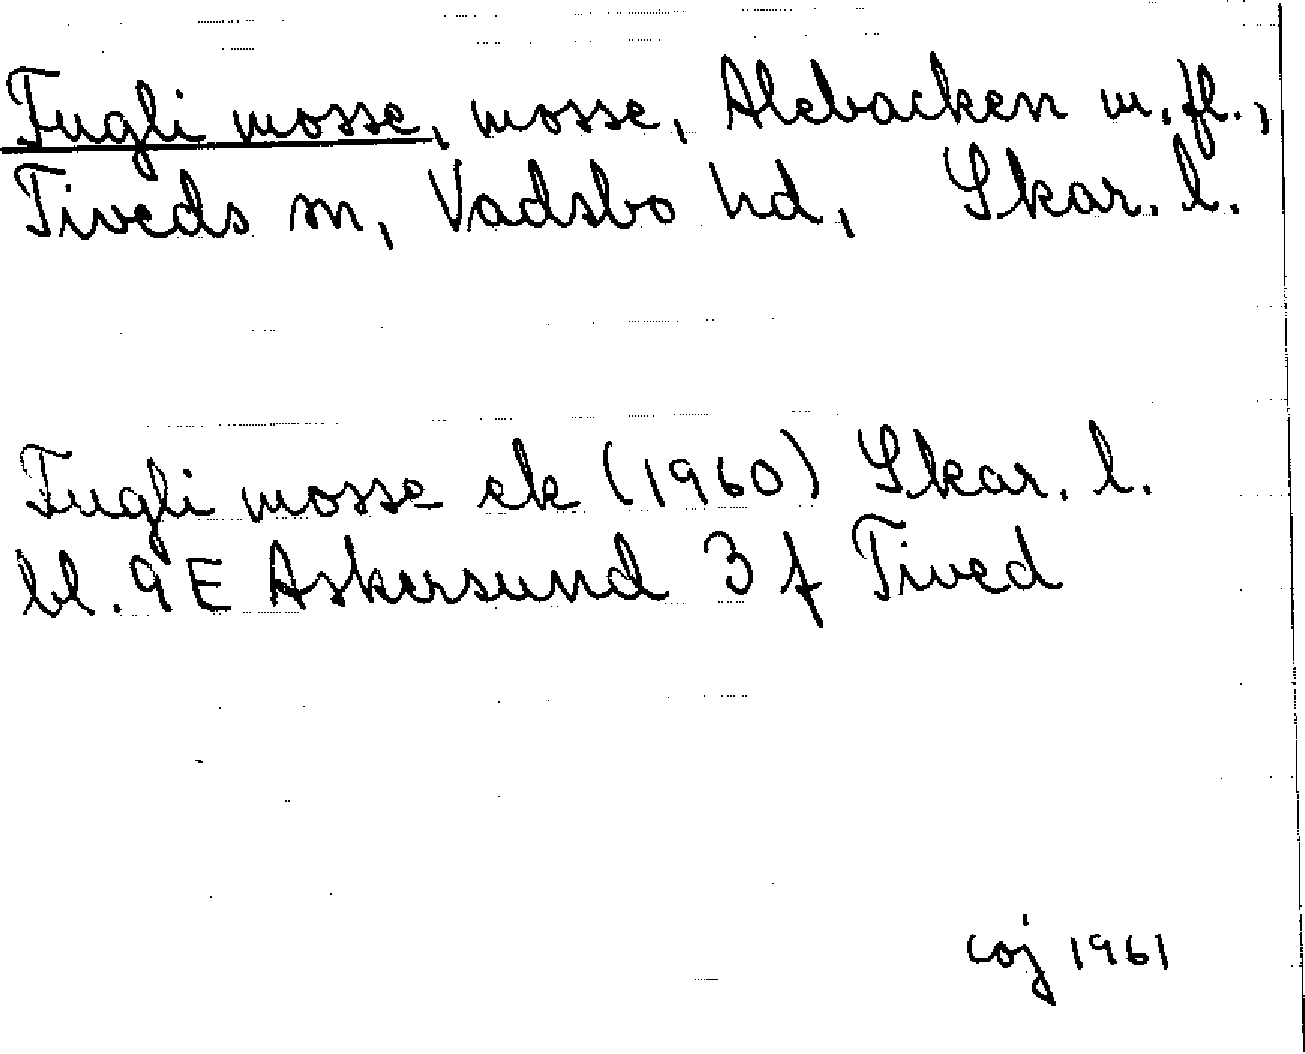 Fugli mosse, mosse, Alebacken m.fl.,
Tiveds sn, Vadsbo hd, Skar. l.
Fugli mosse ek (1960) Skar. l.
bl. 9E Askersund 3 f Tived
coj 1961